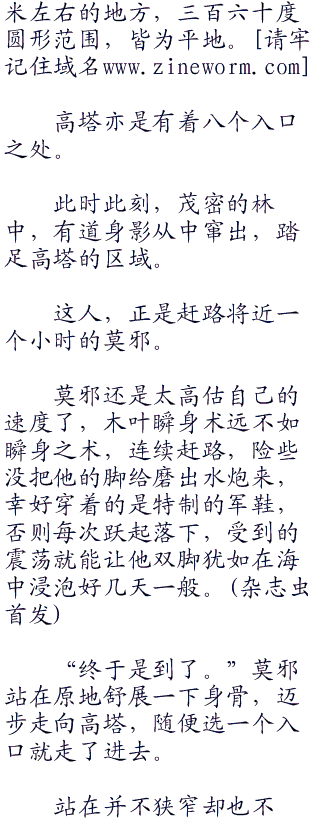 米左右的地方，三百六十度
圆形范围，皆为平地。[请牢
记住域名www.zineworm.com]
高塔亦是有着八个入口
之处。
此时此刻，茂密的林
中，有道身影从中窜出，踏
足高塔的区域。
这人，正是赶路将近一
个小时的莫邪。
莫邪还是太高估自己的
速度了，木叶瞬身术远不如
瞬身之术，连续赶路，险些
没把他的脚给磨出水炮来，
幸好穿着的是特制的军鞋，
否则每次跃起落下，受到的
震荡就能让他双脚犹如在海
中浸泡好几天一般。(杂志虫
首发)
“终于是到了。”莫邪
站在原地舒展一下身骨，迈
步走向高塔，随便选一个入
口就走了进去。
站在并不狭窄却也不